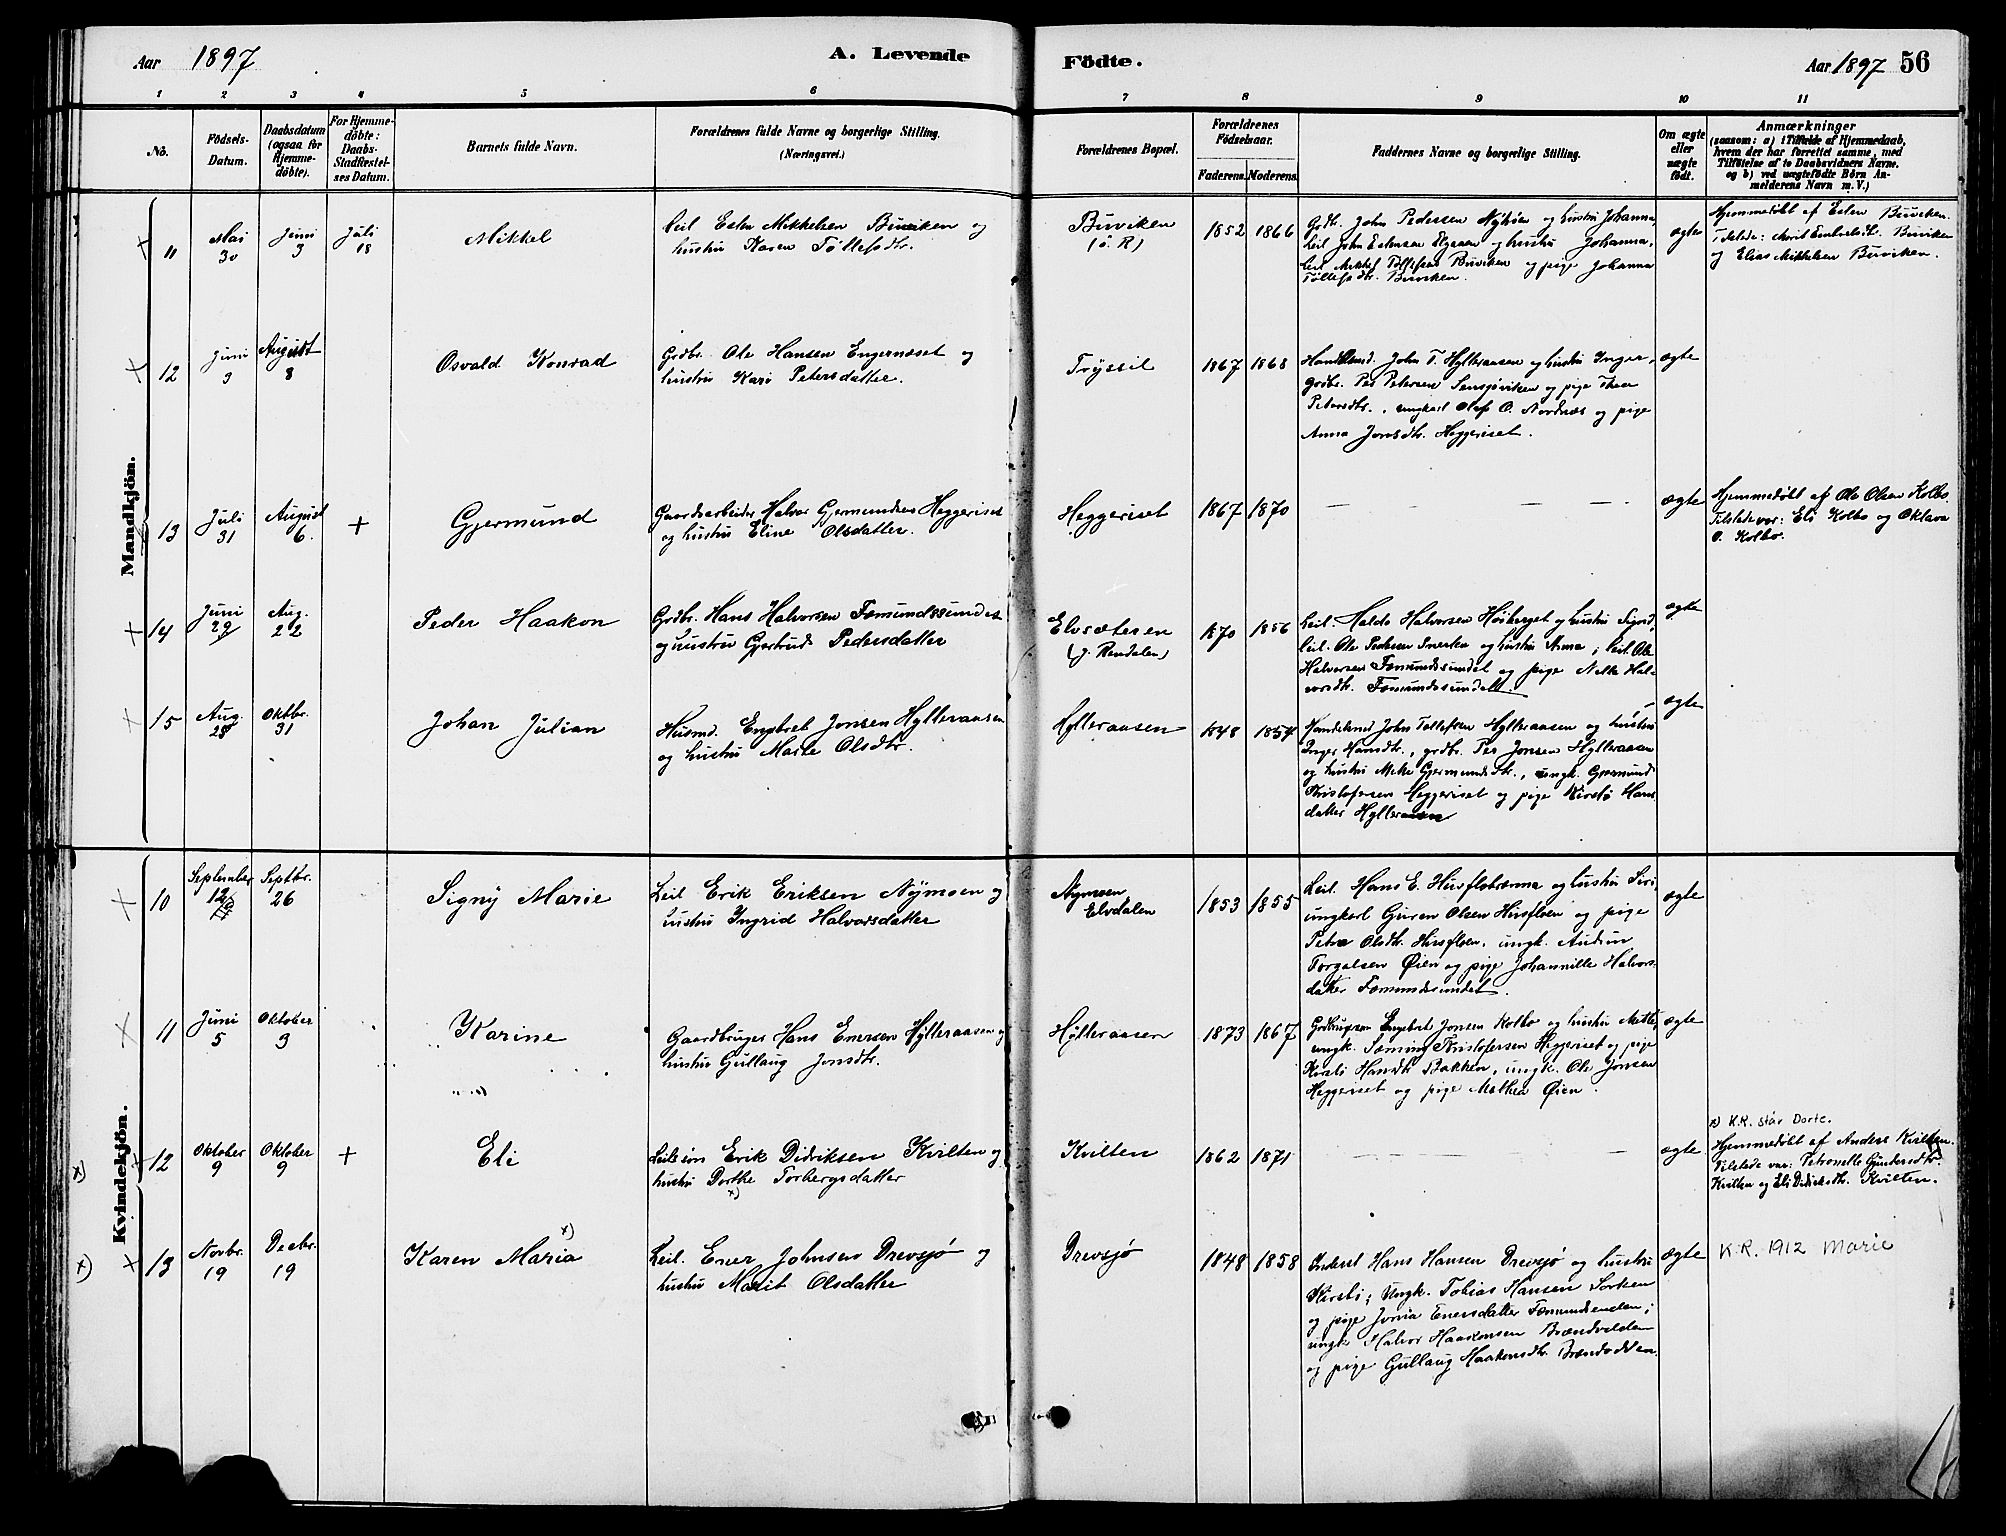 Aar 1897 A. Levende Födte. Aar 1897 56
1 2 3 4 5 6 7 8 9 10 11
No.
Födsels-
Datum.
Daabsdatum
(ogsaa for
Hjemme-
döbte).
For Hjemme-
döbte:
Daabs-
Stadfæstel-
ses Datum.
Barnets fulde Navn.
Forældrenes fulde Navne og borgerlige Stilling.
(Næringsvei.)
Forældrenes Bopæl.
Forældrenes
Födselsaar.
Faderens. Moderens.
Faddernes Navne og borgerlige Stilling.
Om ægte
eller
uægte
födt.
Anmærkninger
(saasom: a) i Tilfælde af Hjemmedaab,
hvem der har forrettet samme, med
Tilföielse af to Daabsvidners Navne.
og b) ved uægtefödte Börn An-
melderens Navn m. V.)
Mandkjön.
11 Mai 30 Juni 3 Juli 18
Mikkel
Leil Esten Mikkelsen Buviken og
hustru Karen Tollefsdtr.
Buviken
(ö. R)
1852 1866
Grdb. John Pedersen Nyhöe og hustru Johanna,
Leil John Estensen Elgaaen og hustru Johanna,
Leil Mikkel Tollefsen Buviken og pige Johanna
Tollefsdtr. Buviken.
ægte
Hjemmedöbt af Esten Buviken.
Tilstede: Marit Embretsdtr. Buviken
og Elias Mikkelsen Buviken.
12 Juni 3 August 8
Osvald Konrad
Grdbr. Ole Hansen Engernæset og
hustru Kari Petersdatter.
Tryssil
1867 1868
Handelsmd. John T. Hylleraasen og hustru Inger,
grdbr. Per Petersen Sensjöviken og pige Thea
Petersdtr., ungkarl Olaf O. Nordnæs og pige
Anna Jonsdtr. Heggeriset.
ægte
13 Juli 31 August 6. +
Gjermund
Gaardsarbeider Halvor Gjermundsen Heggeriset
og hustru Eline Olsdatter.
Heggeriset
1867 1870
ægte
Hjemmedöbt af Ole Olsen Kolbo
Tilstede var: Eli Kolbo og Oklava
O. Kolbo.
14 Juni 29 Aug. 22
Peder Haakon
Grdbr. Hans Halvorsen Fæmundssundet
og hustru Gjertrud Pedersdatter
Elvsæteren
(y. Rendalen)
1870 1856
Leil. Haldo Halvorsen Höiberget og hustru Sigrid,
Leil. Ole Pedersen Sverka og hustru Anna; Leil. Ole
Halvorsen Fæmundssundet og pige Nelle Hal-
vorsdtr. Fæmundssundet.
ægte
15 Aug. 28 Oktbr. 31
Johan Julian
Husmd. Engebret Jonsen Hylleraasen
og hustru Marte Olsdtr.
Hylleraasen
1848 1854
Handelsmd John Tollefsen Hylleraasen og hustru
Inger Hansdtr., grdbr. Per Jonsen Hylleraasen
og hustru Mette Gjermundsdtr., ungk. Gjermund
Kristofersen Heggeriset og pige Kirsti Hans-
datter Hylleraasen
ægte
Kvindekjön.
10 September 12 Septbr. 26
Signy Marie
Leil Erik Eriksen Nymoen og
hustru Ingrid Halvorsdatter
Nymoen
Elvdalen
1853 1855
Leil. Hans E. Husflobrænna og hustru Siri,
ungkarl Guren Olsen Husfloen og pige
Petra Olsdtr. Husfloen, ungk. Audun
Torgalsen Öien og pige Johannille Halvors-
datter Fæmundssundet.
ægte
11 Juni 5 Oktober 3
Karine
Gaardbruger Hans Enersen Hylleraasen og
hustru Gullaug Jonsdtr.
Hylleraasen
1873 1867
Grdbrugeren Engebret Jonsen Kolbo og hustru Mette,
ungk. Sæming Kristofersen Heggeriset og pige
Kirsti Hansdtr Bakken, ungk. Ole Jonsen
Heggeriset og pige Mathea Öien.
ægte
x) 12 Oktober 9 Oktober 9 +
Eli
Leilei͏n Erik Didriksen Kvilten og
hustru Dorthe x) Torbergsdatter
Kvilten
1862 1871
ægte
x) K.R. står Dorte.
Hjemmedöbt af Anders Kvilten.
Tilstede var: Petronelle Gundersdtr.
Kvilten og Eli Didriksdtr. Kvilten.
x) 13 Novbr. 19 Decbr. 19
Karen Maria x)
Leil. Ener Johnsen Drevsjø og
hustru Marit Olsdatter
Drevsjø
1848 1858
Inderst Hans Hansen Drevsjø og hustru
Kirsti; Ungk. Tobias Hansen Sorken
og pige Jovia Enersdatter Fæmundsenden;
ungk. Halvor Haakonsen Brændvolden
og pige Gullaug Haakensdtr. Brændvolden.
ægte
K.R. 1912 Marie